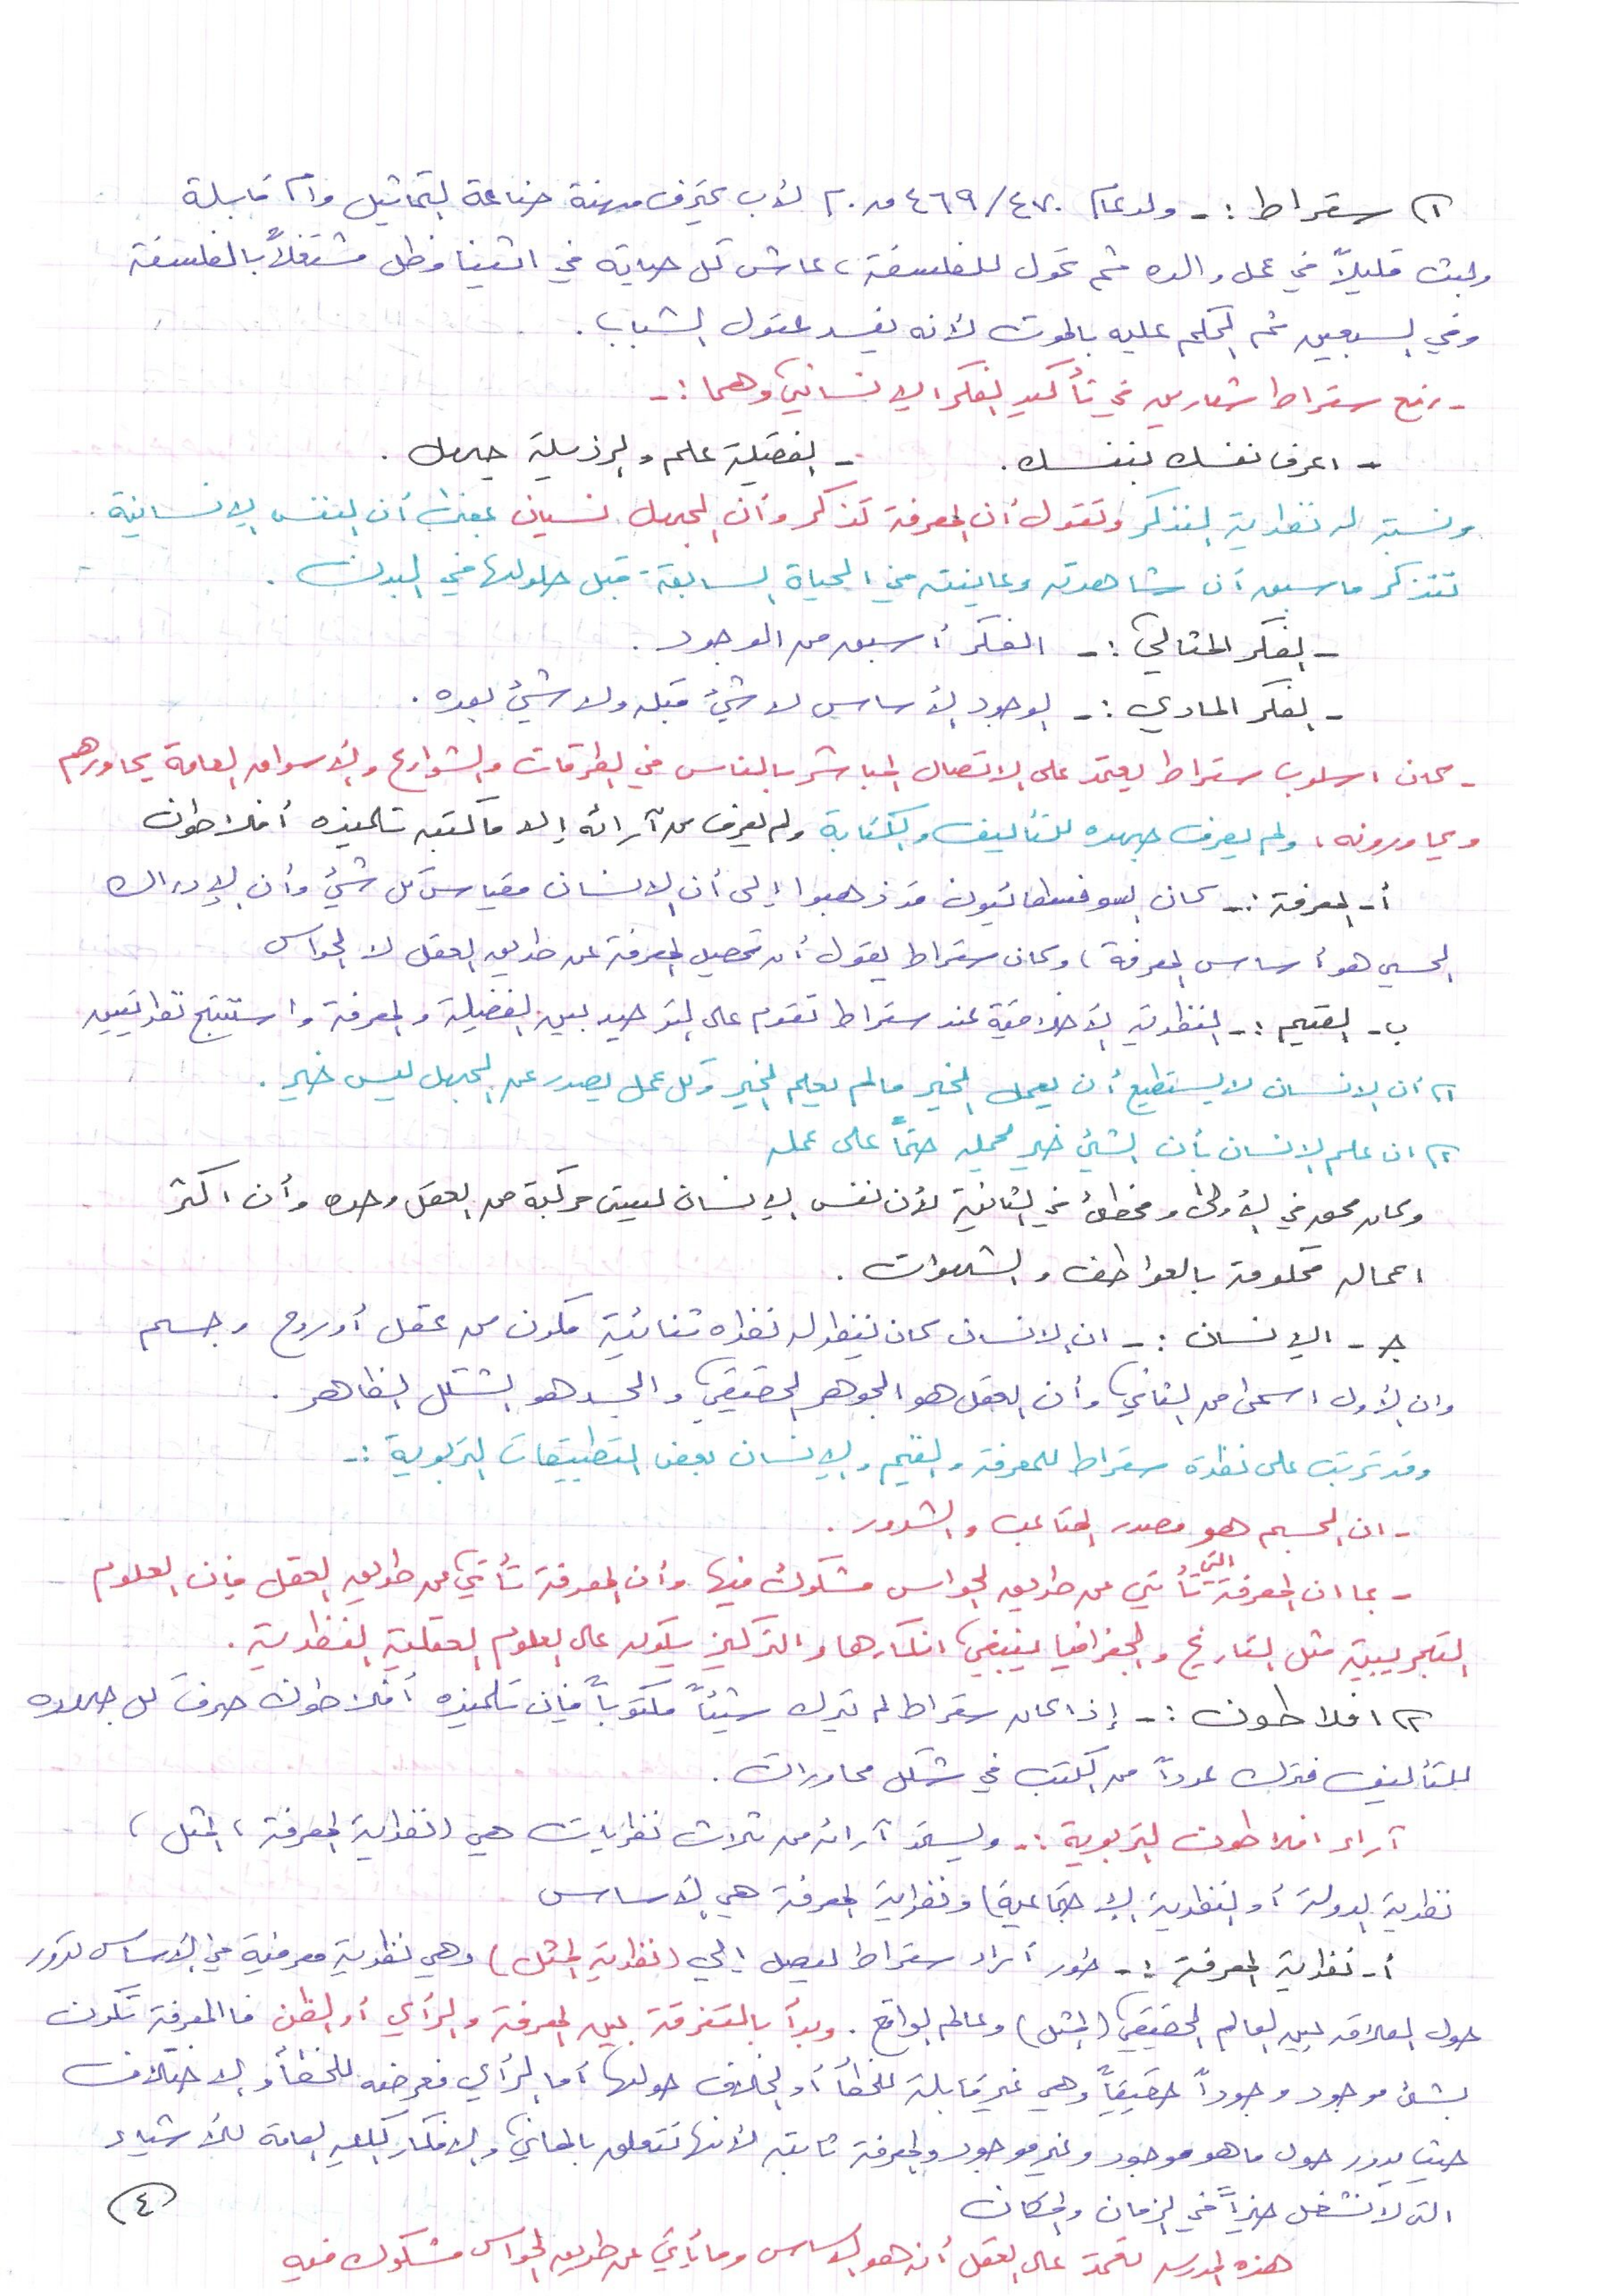 ١) سقراط :- ولد عام ٤٧٠/٤٦٩ ق.م لأب يحترف مهنة صناعة التماثيل وأم قابلة
ولبث قليلاً في عمل والده ثم تحول للفلسفة، عاش كل حياته في اثينا وظل مشتغلاً بالفلسفة
وفي السبعين تم الحكم عليه بالموت لأنه يفسد عقول الشباب.
- رفع سقراط شعارين في تأكيد الفكر الإنساني وهما :-
- اعرف نفسك بنفسك. - الفضيلة علم والرذيلة جهل.
ونسبة له نظرية التذكر وتقول أن المعرفة تذكر وأن الجهل نسيان بمعنى أن النفس الإنسانية
تتذكر ما سبق أن شاهدته وعاينته في الحياة السابقة قبل حلولها في البدن.
- الفكر المثالي :- الفكر أسبق من الوجود.
- الفكر المادي :- الوجود الأساس لا شئ قبله ولا شئ بعده.
- كان اسلوب سقراط يعتمد على الاتصال المباشر بالناس في الطرقات والشوارع والأسواق العامة يحاورهم
ويحاورونه، ولم يصرف جهده للتأليف والكتابة ولم يعرف من آرائه إلا ما كتبه تلميذه أفلاطون
أ- المعرفة :- كان السوفسطائيون قد ذهبوا إلى أن الإنسان مقياس كل شئ وأن الإدراك
الحسي هو أساس المعرفة، وكان سقراط يقول أن تحصيل المعرفة عن طريق العقل لا الحواس
ب- القيم :- النظرية الأخلاقية عند سقراط تقوم على التوحيد بين الفضيلة والمعرفة واستنتج نظريتين
١) أن الإنسان لا يستطيع أن يعمل الخير مالم يعلم الخير وكل عمل يصدر عن الجهل ليس خير.
٢) ان علم الإنسان بأن الشئ خير يحمله حتماً على عمله
وكان محق في الأولى ومخطئ في الثانية لأن نفس الإنسان ليست مركبة من العقل وحده وأن اكثر
اعماله محكومة بالعواطف والشهوات.
جـ- الإنسان :- ان الإنسان كان ينظر له نظره ثنائية مكون من عقل أو روح وجسم
وان الأول اسمى من الثاني وأن العقل هو الجوهر الحقيقي والجسد هو الشكل الظاهر.
وقد ترتب على نظرة سقراط للمعرفة والقيم والإنسان بعض التطبيقات التربوية :-
- ان الجسم هو مصدر المتاعب والشرور.
- بما ان المعرفة التي تأتي عن طريق الحواس مشكوك فيها وأن المعرفة تأتي عن طريق العقل فإن العلوم
التجريبية مثل التاريخ والجغرافيا ينبغي انكارها والتركيز يكون على العلوم العقلية النظرية.
٢) افلاطون :- إذا كان سقراط لم يترك شيئاً مكتوباً فإن تلميذه أفلاطون صرف كل جهده
للتأليف فترك عدداً من الكتب في شكل محاورات.
آراء افلاطون التربوية :- وليستمد آرائه من ثلاث نظريات هي (نظرية المعرفة، المثل،
نظرية الدولة أو النظرية الإجتماعية) ونظرية المعرفة هي الأساس
أ- نظرية المعرفة :- طور أراء سقراط ليصل إلى (نظرية المثل) وهي نظرية معرفية في الأساس تدور
حول العلاقة بين العالم الحقيقي (المثل) وعالم الواقع. وبدأ بالتفرقة بين المعرفة والرأي أو الظن فالمعرفة تكون
بشئ موجود وجوداً حقيقياً وهي غير قابلة للخطأ أو الخلاف حولها أما الرأي فعرضه للخطأ والاختلاف
حيث يدور حول ما هو موجود وغير موجود والمعرفة ثابته لأنها تتعلق بالمعاني والأفكار الكليه العامة للأشياء
التي لا تشغل حيزاً في الزمان والمكان
٤
هذه المدرسه تعتمد على العقل أنه هو الأساس وما يأتي عن طريق الحواس مشكوك فيه